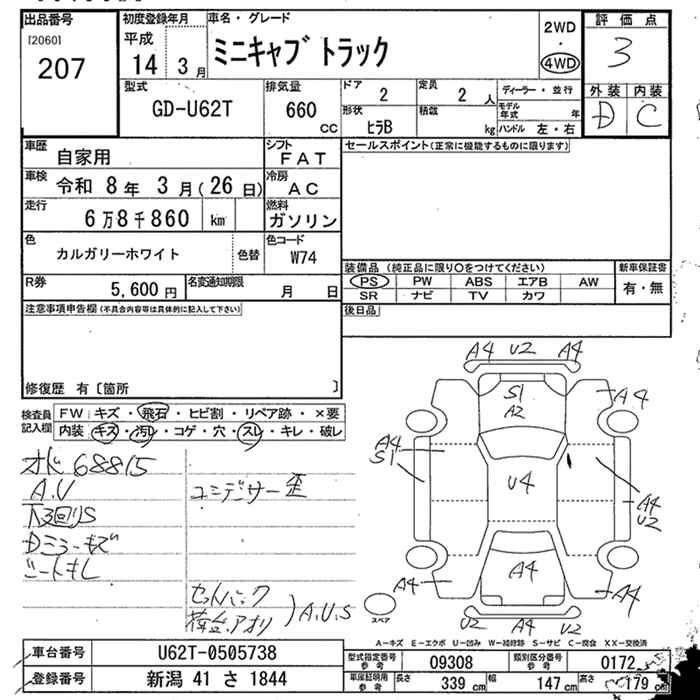 出品番号
[2060]
207
初度登録年月
平成
14 3月
車名・グレード
ミニキャブ トラック
2WD
・
4WD
評価点
3
外装 内装
D C
型式
GD-U62T
排気量
660
CC
ドア
2
定員
2人
ディーラー・並行
モデル年式 年
形状
ヒラB
積載
kg
ハンドル 左・右
車歴
自家用
シフト
FAT
セールスポイント(正常に機能するものに限ります)
車検
令和 8年 3月(26日)
冷房
AC
走行
6万8千860 km
燃料
ガソリン
色
カルガリーホワイト
色替
色コード
W74
装備品 (純正品に限り○をつけてください)
新車保証書
PS PW ABS エアB AW
有・無
SR ナビ TV カワ
R券
5,600円
名変通知期限
月 日
後日品
注意事項申告欄(不具合内容等は具体的に記入して下さい)
修復歴 有〔箇所 〕
検査員記入欄
FW キズ・飛石・ヒビ割・リペア跡・×要
内装 キズ・汚レ・コゲ・穴・スレ・キレ・破レ
68815
A.U
下回りS
Dミラーキズ
シートキレ
コンデンサー歪
セットバック
荷台.アオリ
)A.U.S
A4 U2 A4
S1
A2
A4
A4
S1
U4
A4
U2
A4
A4
A4
U2 A4 U2
スペア
A-キズ E-エクボ U-凹み W-補修跡 S-サビ C-腐食 XX-交換済
車台番号
U62T-0505738
登録番号
新潟 41 さ 1844
型式指定番号
参考
09308
類別区分番号
参考
0172
車庫証明用
参考
長さ
339cm
幅
147cm
高さ
179cm